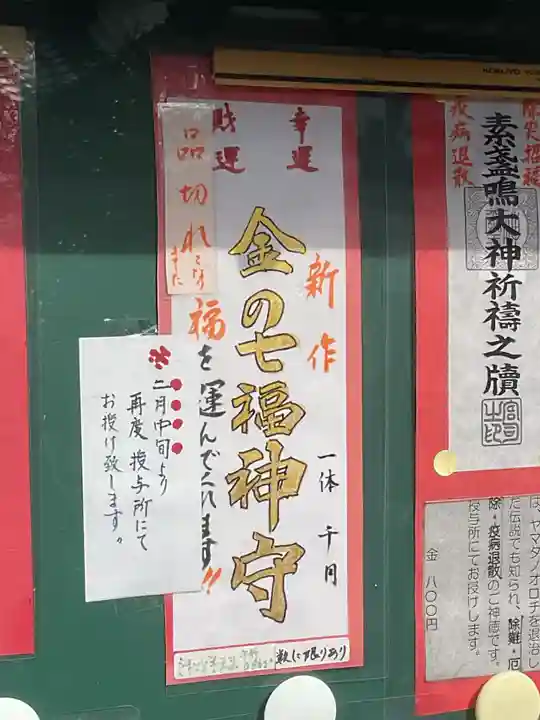 KOKUYO
幸運
財運
品切れとなり
ました
新作
金の七福神守
一体 千円
福を運んでくれます!!
数に限りあり
※二月中旬より
再度 授与所にて
お授け致します。
疫病退散
素盞鳴大神祈祷之牘
は、ヤマタノオロチを退治し
た伝説でも知られ、除難・厄
除・疫病退散のご神徳です。
授与所にてお授けします。
金 八〇〇円